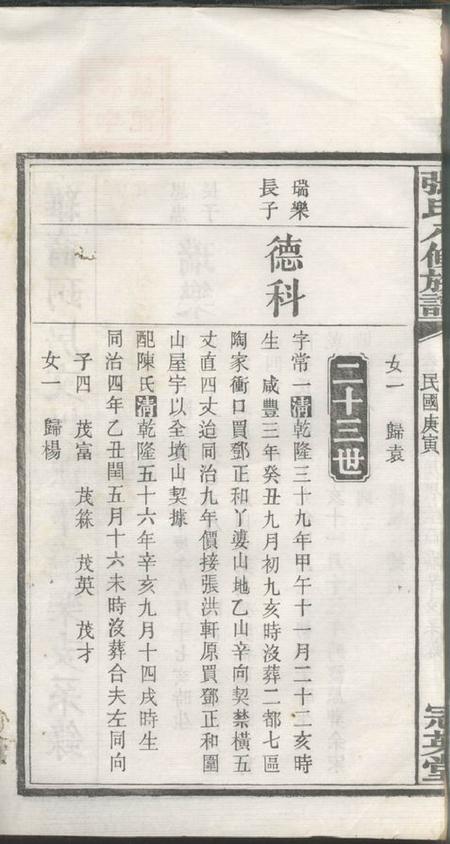 張氏八修族譜
民國庚寅
冠英堂
女一 歸袁
二十三世
瑞樂長子
德科
字常一清乾隆三十九年甲午十一月二十二亥時
生 咸豐三年癸丑九月初九亥時沒葬二都七區
陶家衝口買鄧正和丫婆山地乙山辛向契禁橫五
丈直四丈迨同治九年價接張洪軒原買鄧正和圍
山屋宇以全墳山契據
配陳氏清乾隆五十六年辛亥九月十四戌時生
同治四年乙丑閏五月十六未時沒葬合夫左同向
子四 茂富 茂箖 茂英 茂才
女一 歸楊